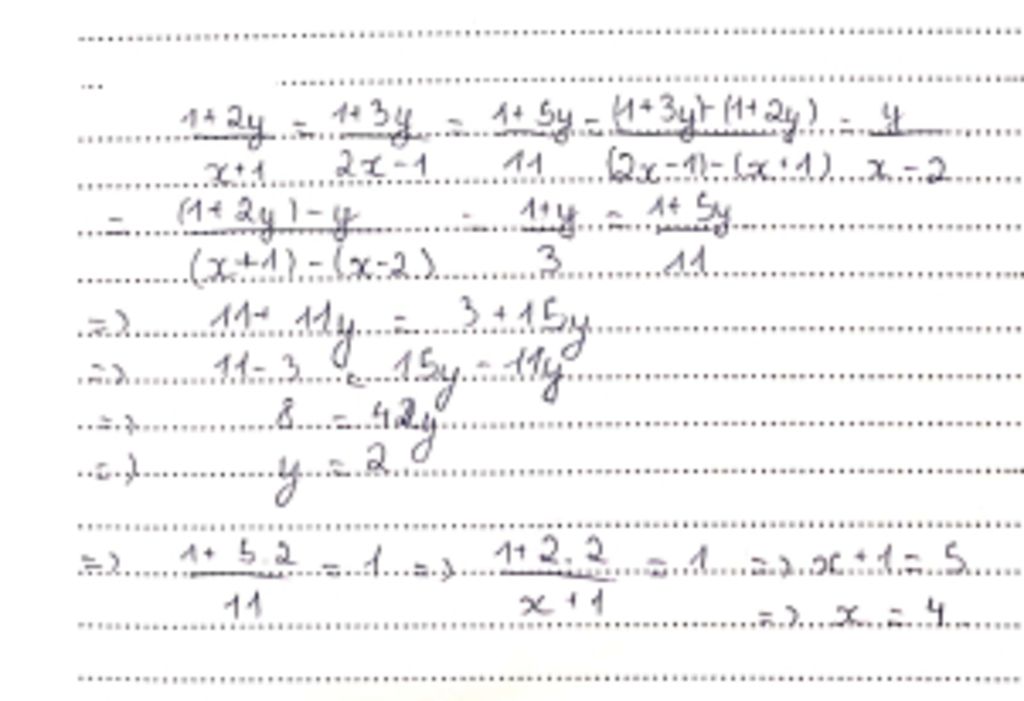 (1+2y)/(x+1) = (1+3y)/(2x-1) = (1+5y)/11 = ((1+3y)-(1+2y))/((2x-1)-(x+1)) = y/(x-2)
= ((1+2y)-y)/((x+1)-(x-2)) = (1+y)/3 = (1+5y)/11
=> 11+11y = 3+15y
=> 11-3 = 15y-11y
=> 8 = 4y
=> y = 2
=> (1+5.2)/11 = 1 => (1+2.2)/(x+1) = 1 => x+1 = 5
=> x = 4